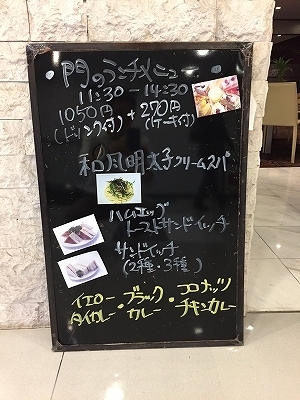 門のランチメニュー
11:30-14:30
1050円 + 270円
(ドリンク付) (ケーキ付)
和風明太子クリームスパ
ハムエッグ
トーストサンドイッチ
サンドイッチ
(2種・3種)
イエロー・ブラック・ココナッツ
タイカレー カレー チキンカレー